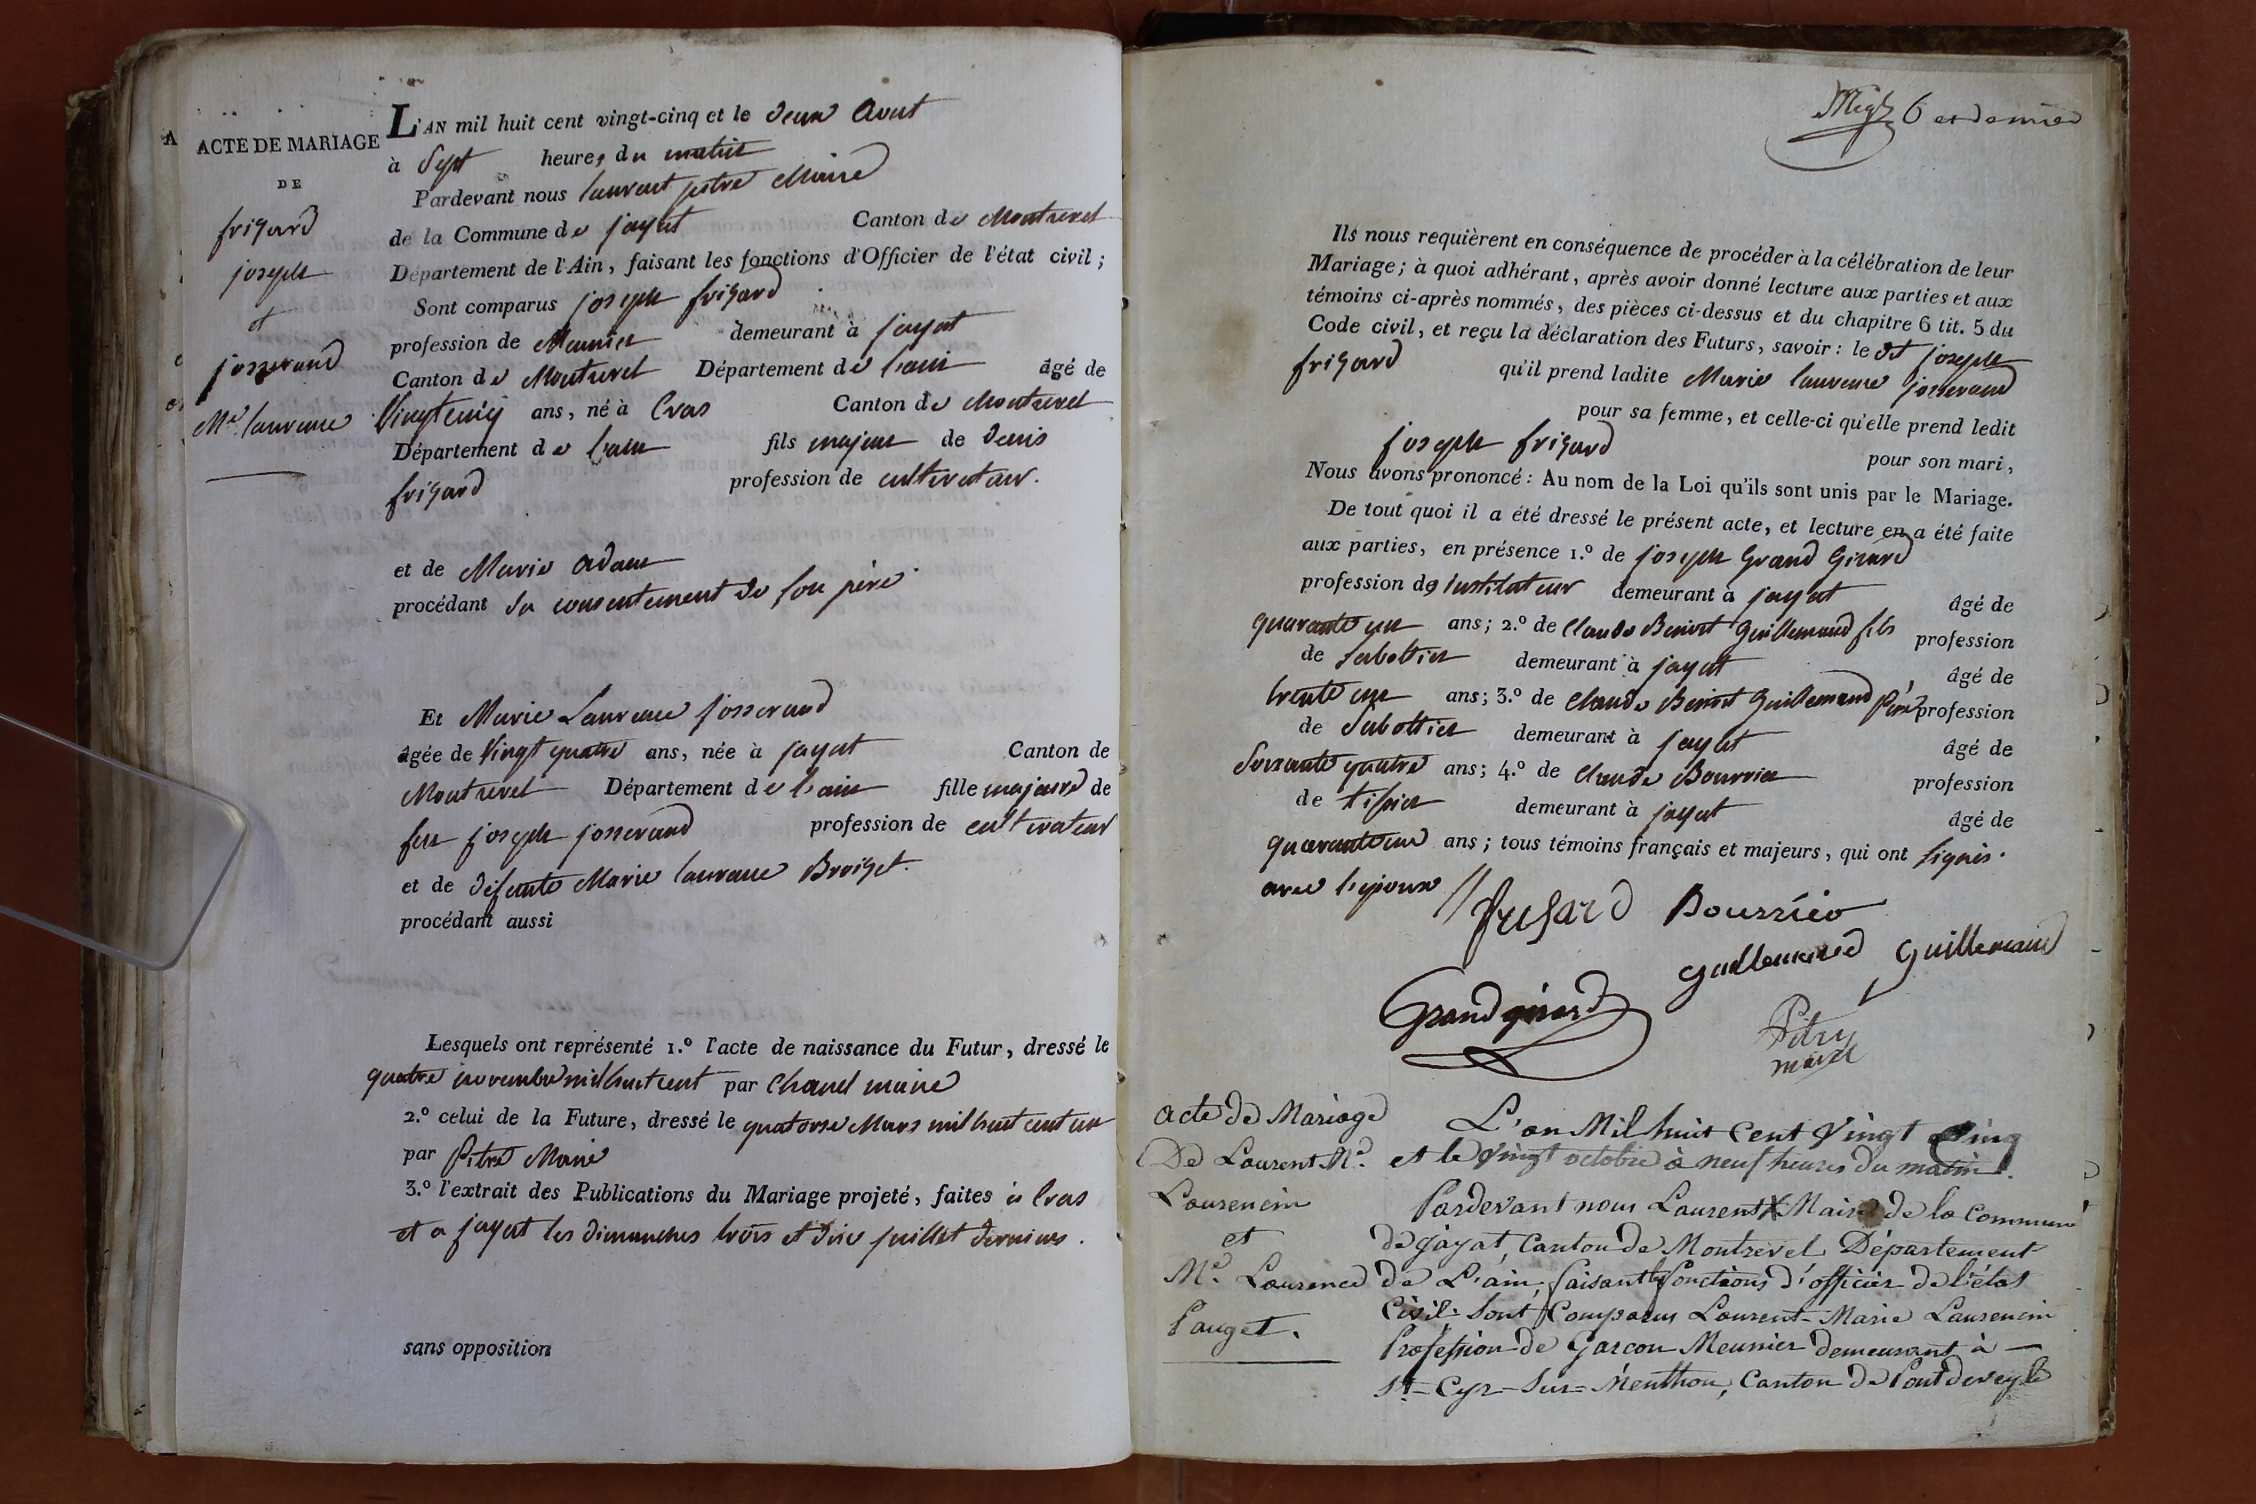 ACTE DE MARIAGE
DE
frigard
joseph
et
josserand
Me. laurence
L'AN mil huit cent vingt-cinq et le deux Aout
à Sept heures du matin
Pardevant nous laurent pitre Maire
de la Commune de jayat Canton de Montrevel
Département de l'Ain, faisant les fonctions d'Officier de l'état civil;
Sont comparus joseph frigard
profession de Meunier demeurant à jayat
Canton de Montrevel Département de l'ain âgé de
Vingtcinq ans, né à Cras Canton de Montrevel
Département de l'ain fils majeur de denis
frigard profession de cultivateur.
et de Marie adam
procédant du consentement de son père
Et Marie Laurence josserand
âgée de Vingt quatre ans, née à jayat Canton de
Montrevel Département de l'ain fille majeure de
feu joseph josserand profession de cultivateur
et de défunte Marie laurence Broiset.
procédant aussi
Lesquels ont représenté 1.º l'acte de naissance du Futur, dressé le
quatre novembre mil huit cent par Chanel maire
2.º celui de la Future, dressé le quatorse Mars mil huit cent un
par Pitre Maire
3.º l'extrait des Publications du Mariage projeté, faites à Cras
et a jayat les dimanches trois et dix juillet derniers.
sans opposition
6 et dernier
Ils nous requièrent en conséquence de procéder à la célébration de leur
Mariage; à quoi adhérant, après avoir donné lecture aux parties et aux
témoins ci-après nommés, des pièces ci-dessus et du chapitre 6 tit. 5 du
Code civil, et reçu la déclaration des Futurs, savoir: le dt joseph
frigard qu'il prend ladite Marie laurence josserand
pour sa femme, et celle-ci qu'elle prend ledit
joseph frigard pour son mari,
Nous avons prononcé: Au nom de la Loi qu'ils sont unis par le Mariage.
De tout quoi il a été dressé le présent acte, et lecture en a été faite
aux parties, en présence 1.º de joseph Grand Girard
profession de instituteur demeurant à jayat âgé de
quarante un ans; 2.º de Claude Benoit Guillemaud fils profession
de Sabottier demeurant à jayat âgé de
trente un ans; 3.º de Claude Benoit Guillemaud Père profession
de Sabottier demeurant à jayat âgé de
Soixante quatre ans; 4.º de Claude Bourrier profession
de tisier demeurant à jayat âgé de
quarante un ans; tous témoins français et majeurs, qui ont signés.
avec l'epoux //
frisard Bourrier
guillemaud guillemaud
Grandgirard
Pitre
maire
acte de Mariage
De Laurent Me.
Laurencin
et
Me. Laurence
Pauget.
L'an Mil huit Cent Vingt Cinq
et le vingt octobre à neuf heures du matin.
Pardevant nous Laurent Maire de la Commune
de jayat, Canton de Montrevel Département
de L'ain, faisant les fonctions d'officier de l'état
Civil: Sont Comparus Laurent-Marie Laurencin
Profession de Garçon Meunier demeurant à
St-Cyr-Sur-Menthon, Canton de Pont de veyle